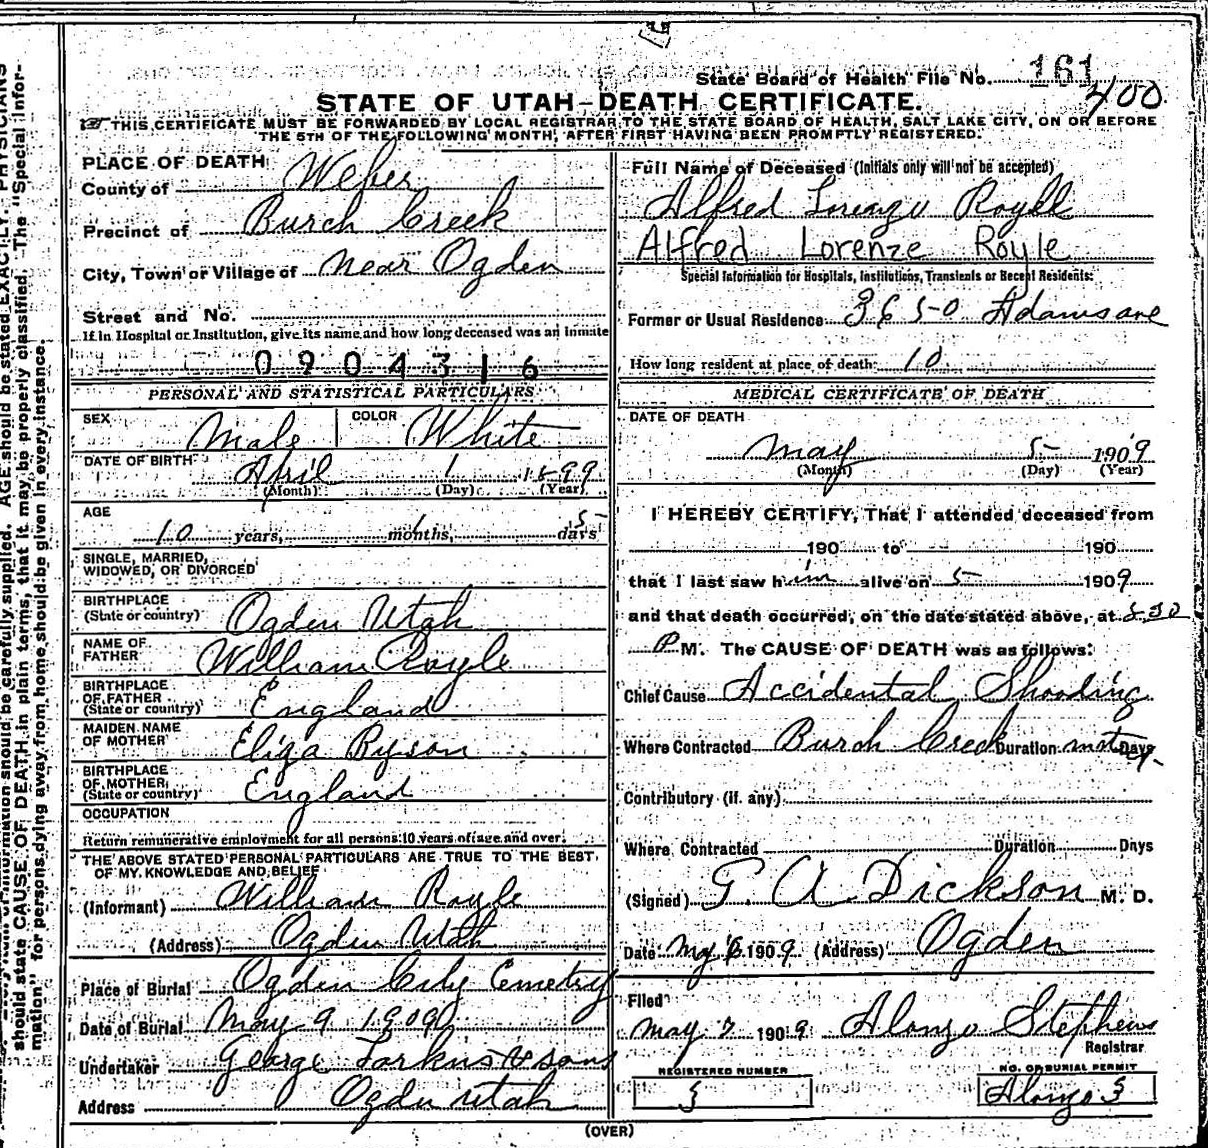 State Board of Health File No. 161
400
STATE OF UTAH-DEATH CERTIFICATE.
THIS CERTIFICATE MUST BE FORWARDED BY LOCAL REGISTRAR TO THE STATE BOARD OF HEALTH, SALT LAKE CITY, ON OR BEFORE
THE 5TH OF THE FOLLOWING MONTH, AFTER FIRST HAVING BEEN PROMPTLY REGISTERED.
PLACE OF DEATH
County of Weber
Precinct of Burch Creek
City, Town or Village of near Ogden
Street and No.
If in Hospital or Institution, give its name and how long deceased was an inmate
0904316
PERSONAL AND STATISTICAL PARTICULARS
SEX Male COLOR White
DATE OF BIRTH April 1 1899
(Month) (Day) (Year)
AGE
10 years, 1 months, 5 days
SINGLE, MARRIED,
WIDOWED, OR DIVORCED
BIRTHPLACE
(State or country) Ogden Utah
NAME OF
FATHER William Royle
BIRTHPLACE
OF FATHER
(State or country) England
MAIDEN NAME
OF MOTHER Eliza Ryson
BIRTHPLACE
OF MOTHER
(State or country) England
OCCUPATION
Return remunerative employment for all persons 10 years of age and over.
THE ABOVE STATED PERSONAL PARTICULARS ARE TRUE TO THE BEST
OF MY KNOWLEDGE AND BELIEF
(Informant) William Royle
(Address) Ogden Utah
Place of Burial Ogden City Cemetry
Date of Burial May 9 1909
Undertaker George Larkin & sons
Address Ogden Utah
Full Name of Deceased (Initials only will not be accepted)
Alfred Lorenzo Royle
Alfred Lorenze Royle
Special Information for Hospitals, Institutions, Transients or Recent Residents:
Former or Usual Residence 3650 Adams ave
How long resident at place of death 10
MEDICAL CERTIFICATE OF DEATH
DATE OF DEATH
May 5 1909
(Month) (Day) (Year)
I HEREBY CERTIFY, That I attended deceased from
190 to 190
that I last saw him alive on 5 1909
and that death occurred, on the date stated above, at 5 30
P M. The CAUSE OF DEATH was as follows:
Chief Cause Accidental Shooding
Where Contracted Burch Creek Duration Days
Contributory (if any)
Where Contracted Duration Days
(Signed) G. A. Dickson M. D.
Date May 1909 (Address) Ogden
Filed
May 7 1909 Alonzo Stephens
Registrar
REGISTERED NUMBER
3
NO. OF BURIAL PERMIT
Alonzo 3
(OVER)
should be carefully supplied. AGE should be stated EXACTLY. PHYSICIANS
should state CAUSE OF DEATH in plain terms, that it may be properly classified. The "Special Infor-
mation" for persons dying away from home should be given in every instance.